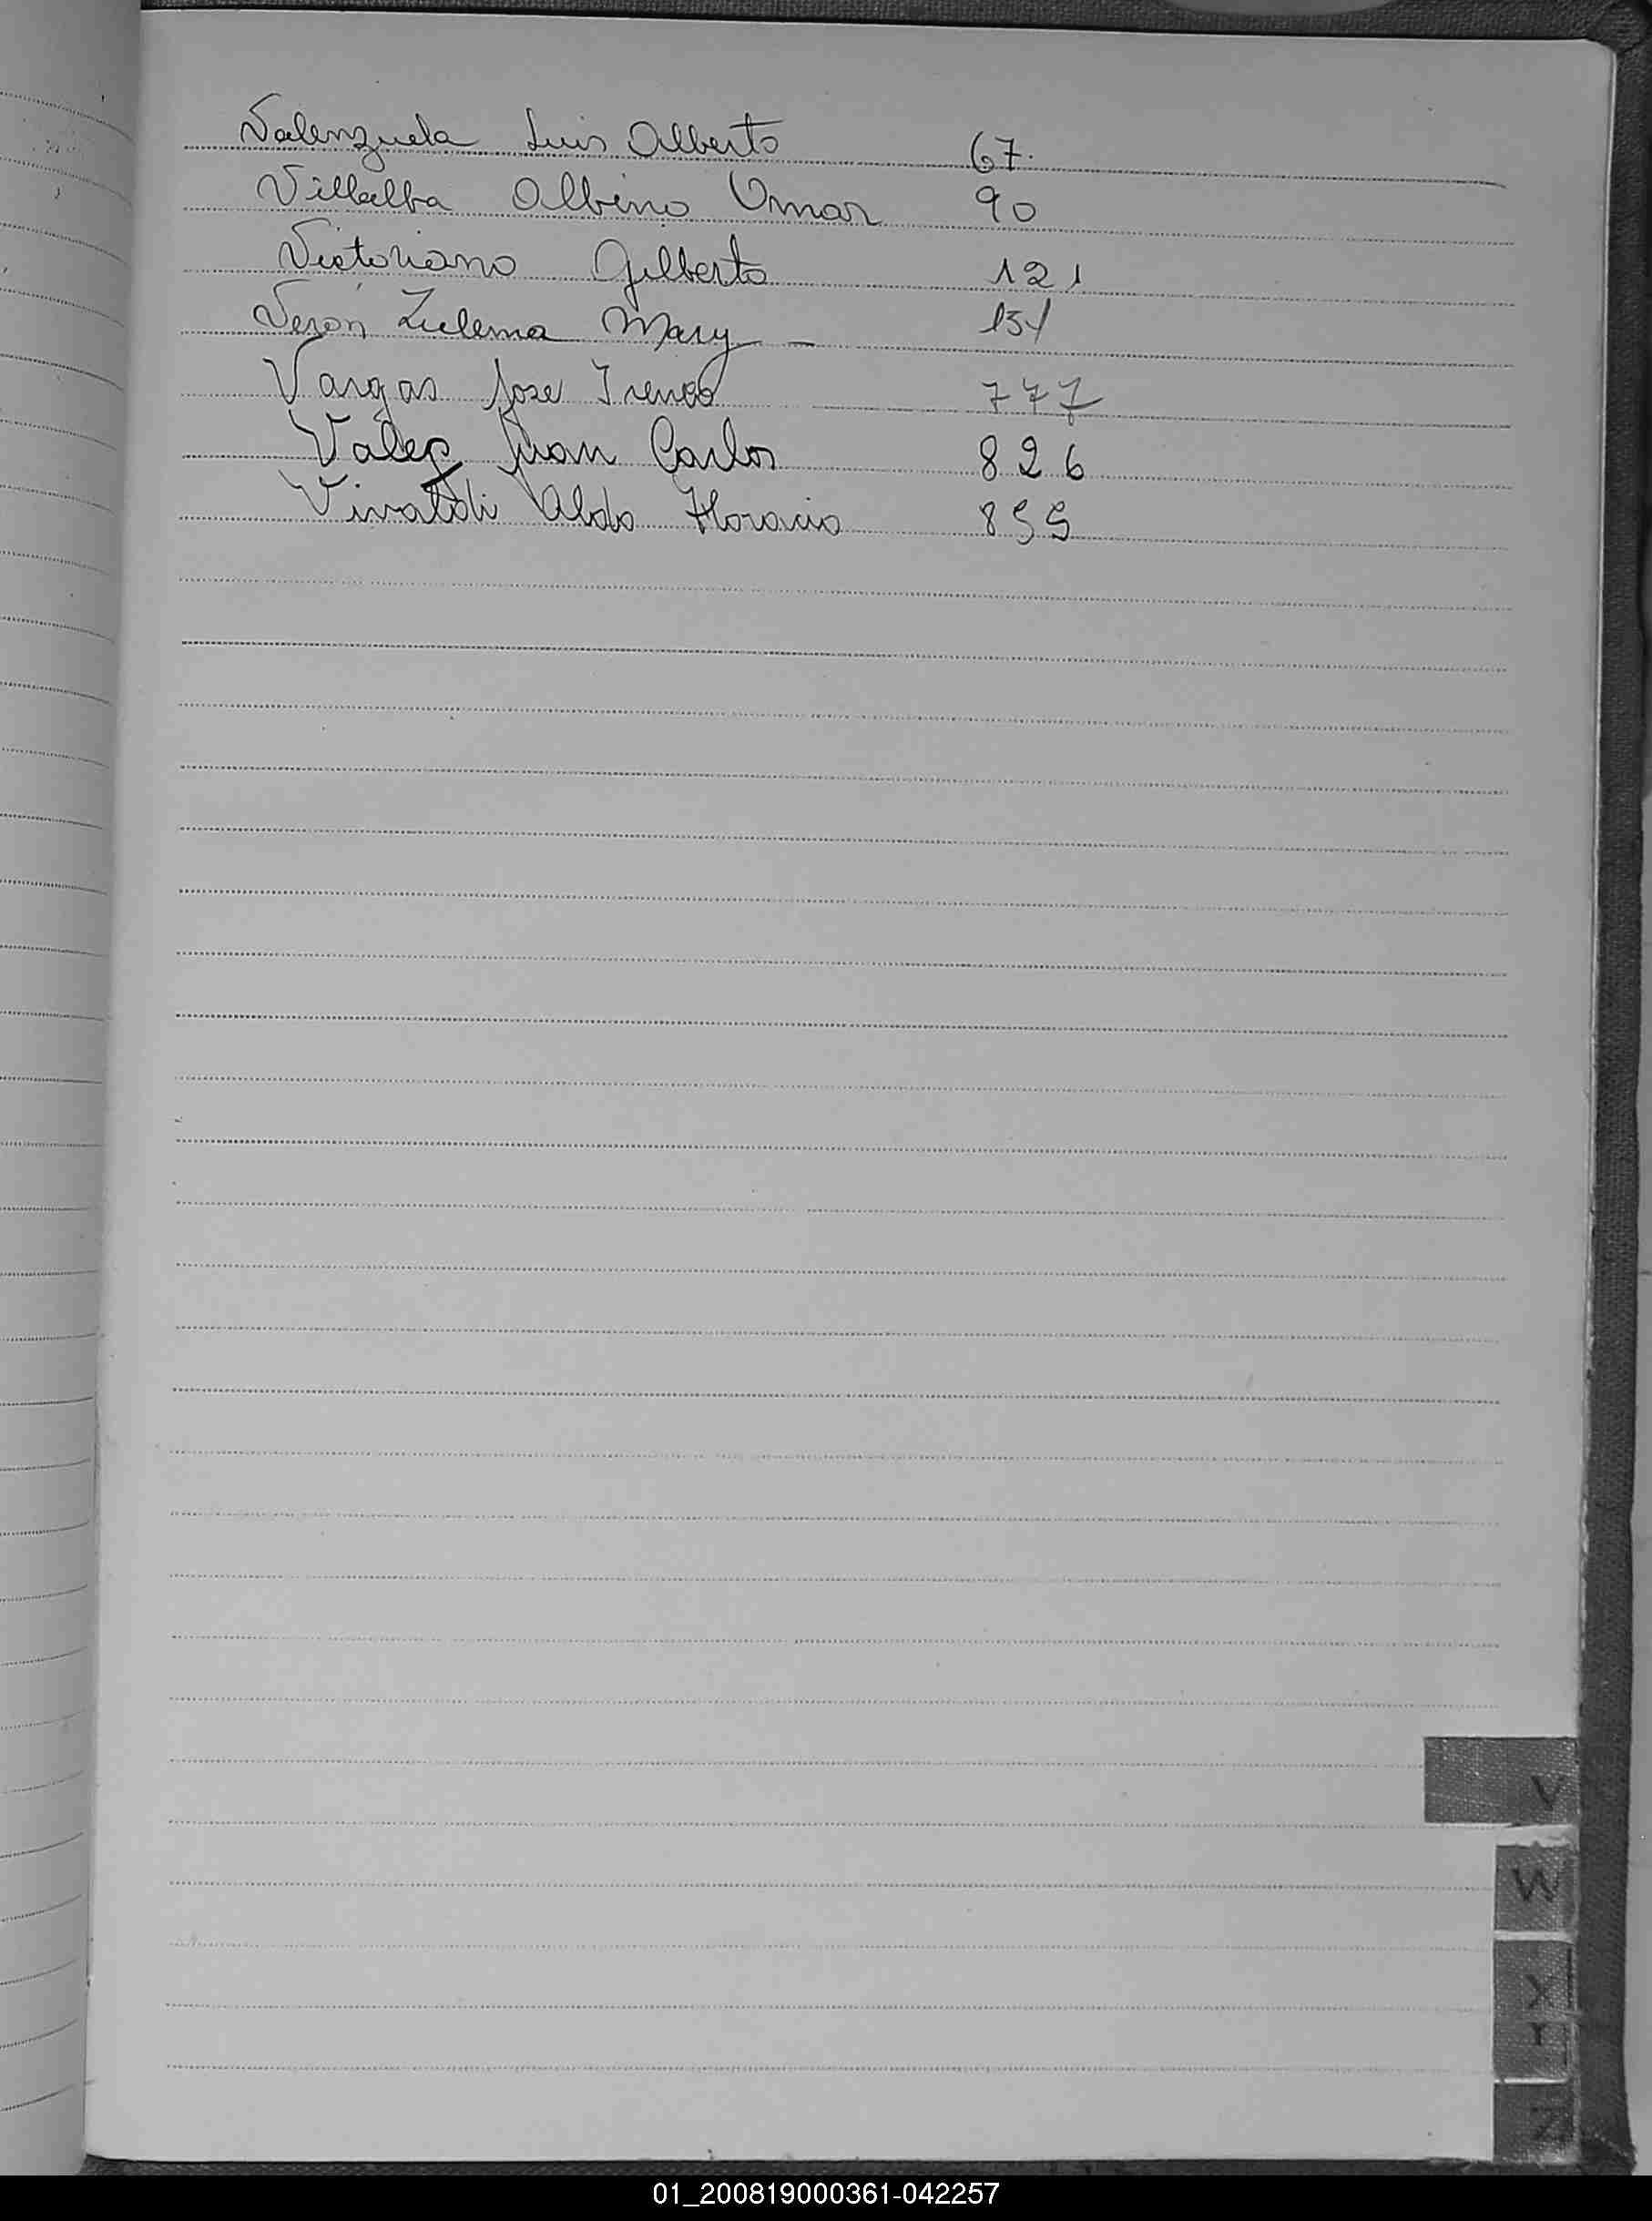 Valenzuela Luis Alberto 67.
Villalba Albino Omar 90
Victoriano Gilberto 121
Verón Zulema Mary — 131
Vargas Jose Ireneo 777
Valez Juan Carlos 826
Vivaldi Aldo Horacio 859
V
W
X
Y
Z
01_200819000361-042257